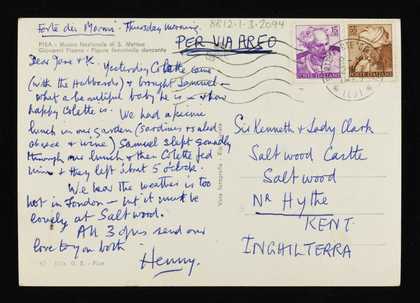 8812.1.3.2094
Forte dei Marmi Thursday morning.
PISA - Museo Nazionale di S. Matteo
Giovanni Pisano - Figura femminile danzante
PER VIA AEREO
Dear Jane & K. Yesterday Colette came
(with the Hubbards) & brought Samuel -
what a beautiful baby he is - & how
happy Colette is. We had a picnic
lunch in our garden (sardines & salad
cheese & wine) Samuel slept soundly
through our lunch & then Colette fed
him & they left about 5 o'clock.
We hear the weather is too
hot in London - but it must be
lovely at Saltwood.
All 3 of us send our
love to you both
Henry.
Sir Kenneth & Lady Clark
Saltwood Castle
Saltwood
Nr Hythe
KENT.
INGHILTERRA
15
POSTE ITALIANE
55
POSTE ITALIANE